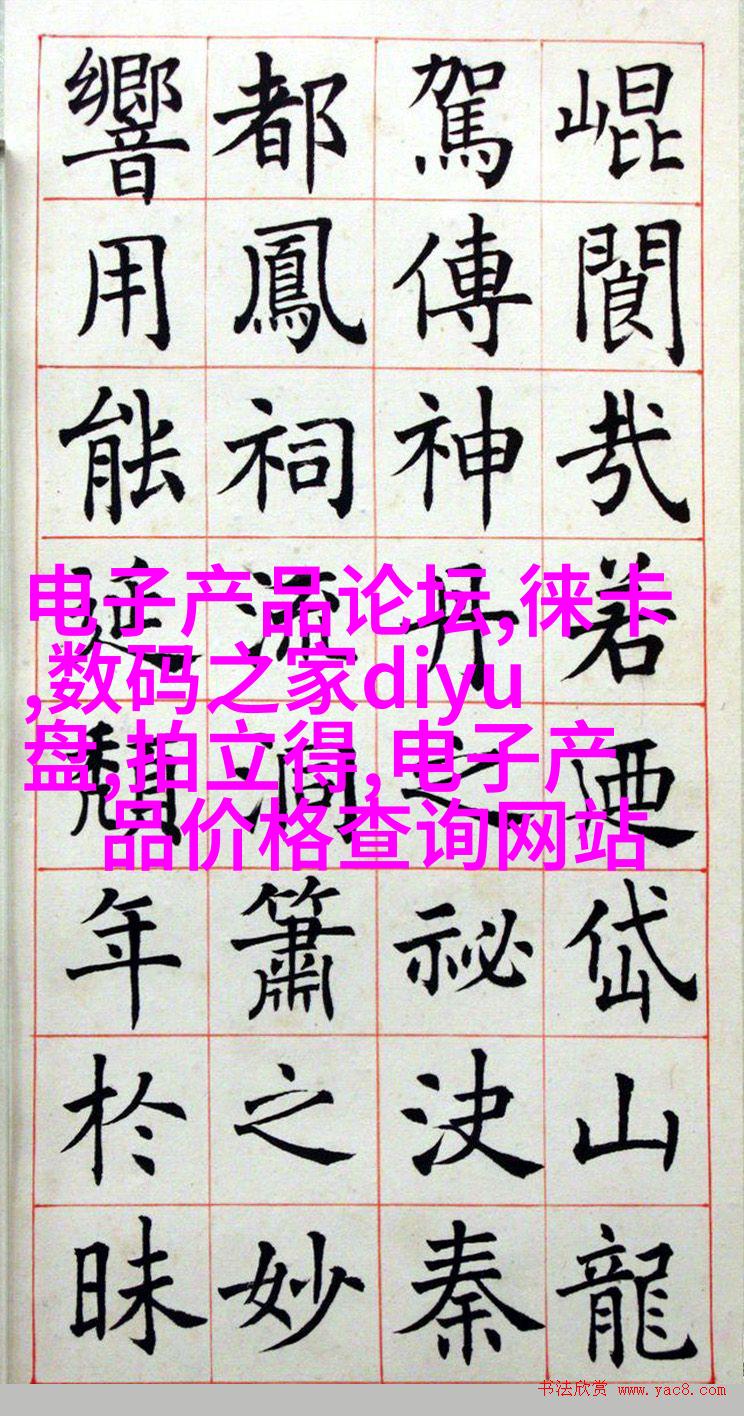 崐閬㢤若迺岱山龍
駕傳神丹之祕決秦
都鳳祠流洞簫之妙
響用能延頹年於昧
电子产品论坛,徕卡
,数码之家diyu
盘,拍立得,电子产
品价格查询网站
书法欣赏 www.yac8.com